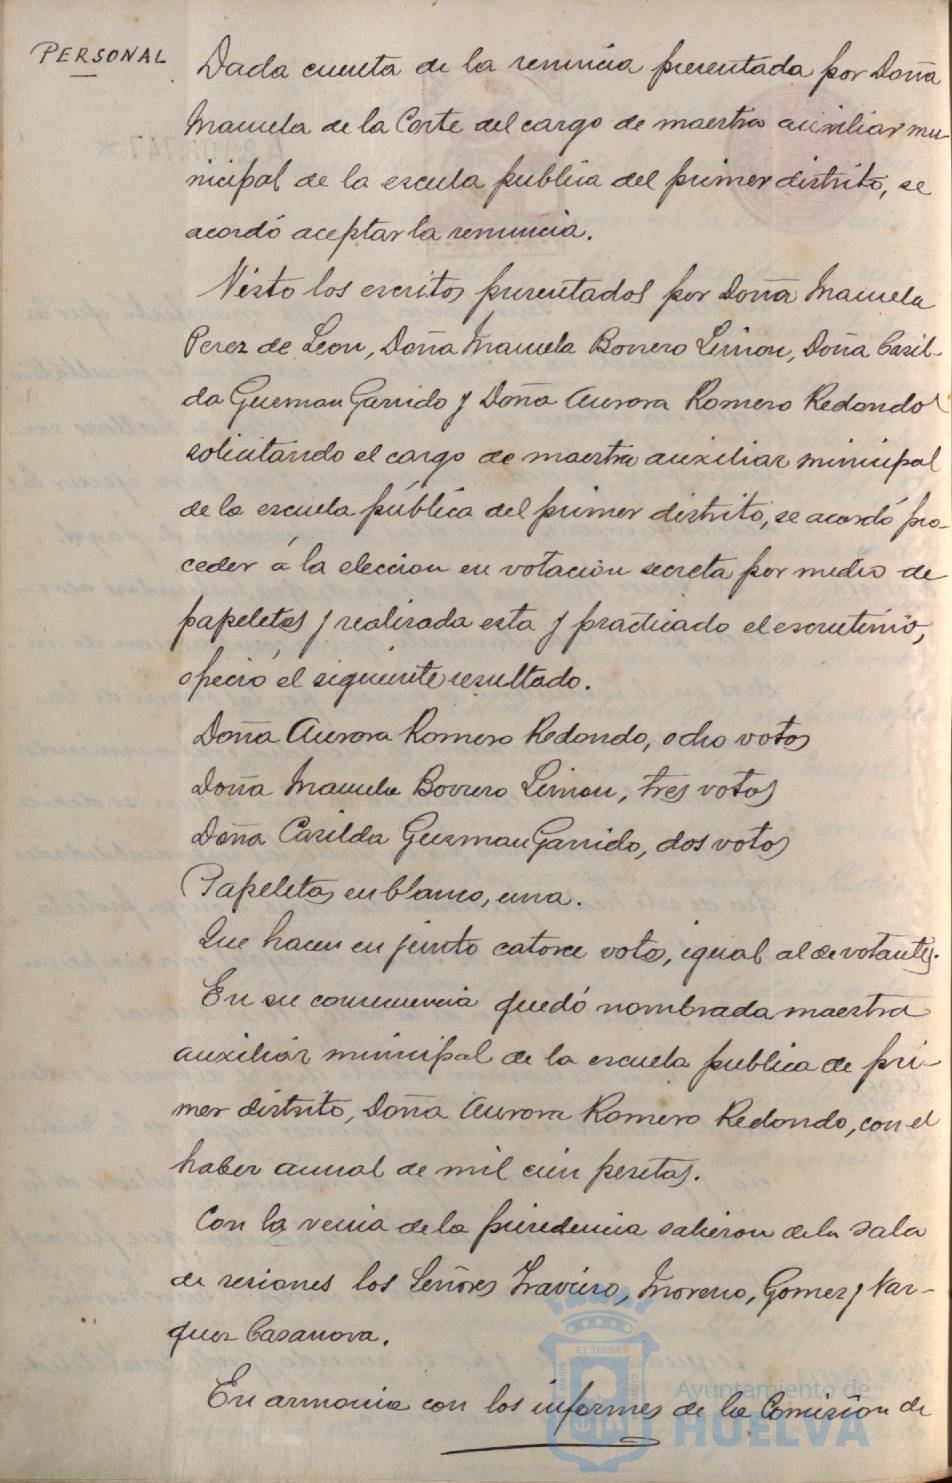 PERSONAL
Dada cuenta de la renuncia presentada por Doña
Manuela de la Corte del cargo de maestra auxiliar mu-
nicipal de la escuela publica del primer distrito, se
acordó aceptar la renuncia.
Visto los escritos presentados por Doña Manuela
Perez de Leon, Doña Manuela Borrero Limon, Doña Casil-
da Guzman Garrido y Doña Aurora Romero Redondo
solicitando el cargo de maestra auxiliar municipal
de la escuela pública del primer distrito, se acordó pro-
ceder á la eleccion en votación secreta por medio de
papeletas y realizada esta y practicado el escrutinio,
ofreció el siguiente resultado.
Doña Aurora Romero Redondo, ocho votos
Doña Manuela Borrero Limon, tres votos
Doña Casilda Guzman Garrido, dos votos
Papeletas en blanco, una.
Que hacen en junto catorce votos, igual al de votantes.
En su consecuencia quedó nombrada maestra
auxiliar municipal de la escuela publica de pri-
mer distrito, Doña Aurora Romero Redondo, con el
haber anual de mil cien pesetas.
Con la venia de la presidencia salieron de la sala
de sesiones los Señores Traviero, Moreno, Gomez y Vaz-
quez Casanova.
En armonia con los informes de la Comisión de
ET TERRA
Ayuntamiento de
HUELVA